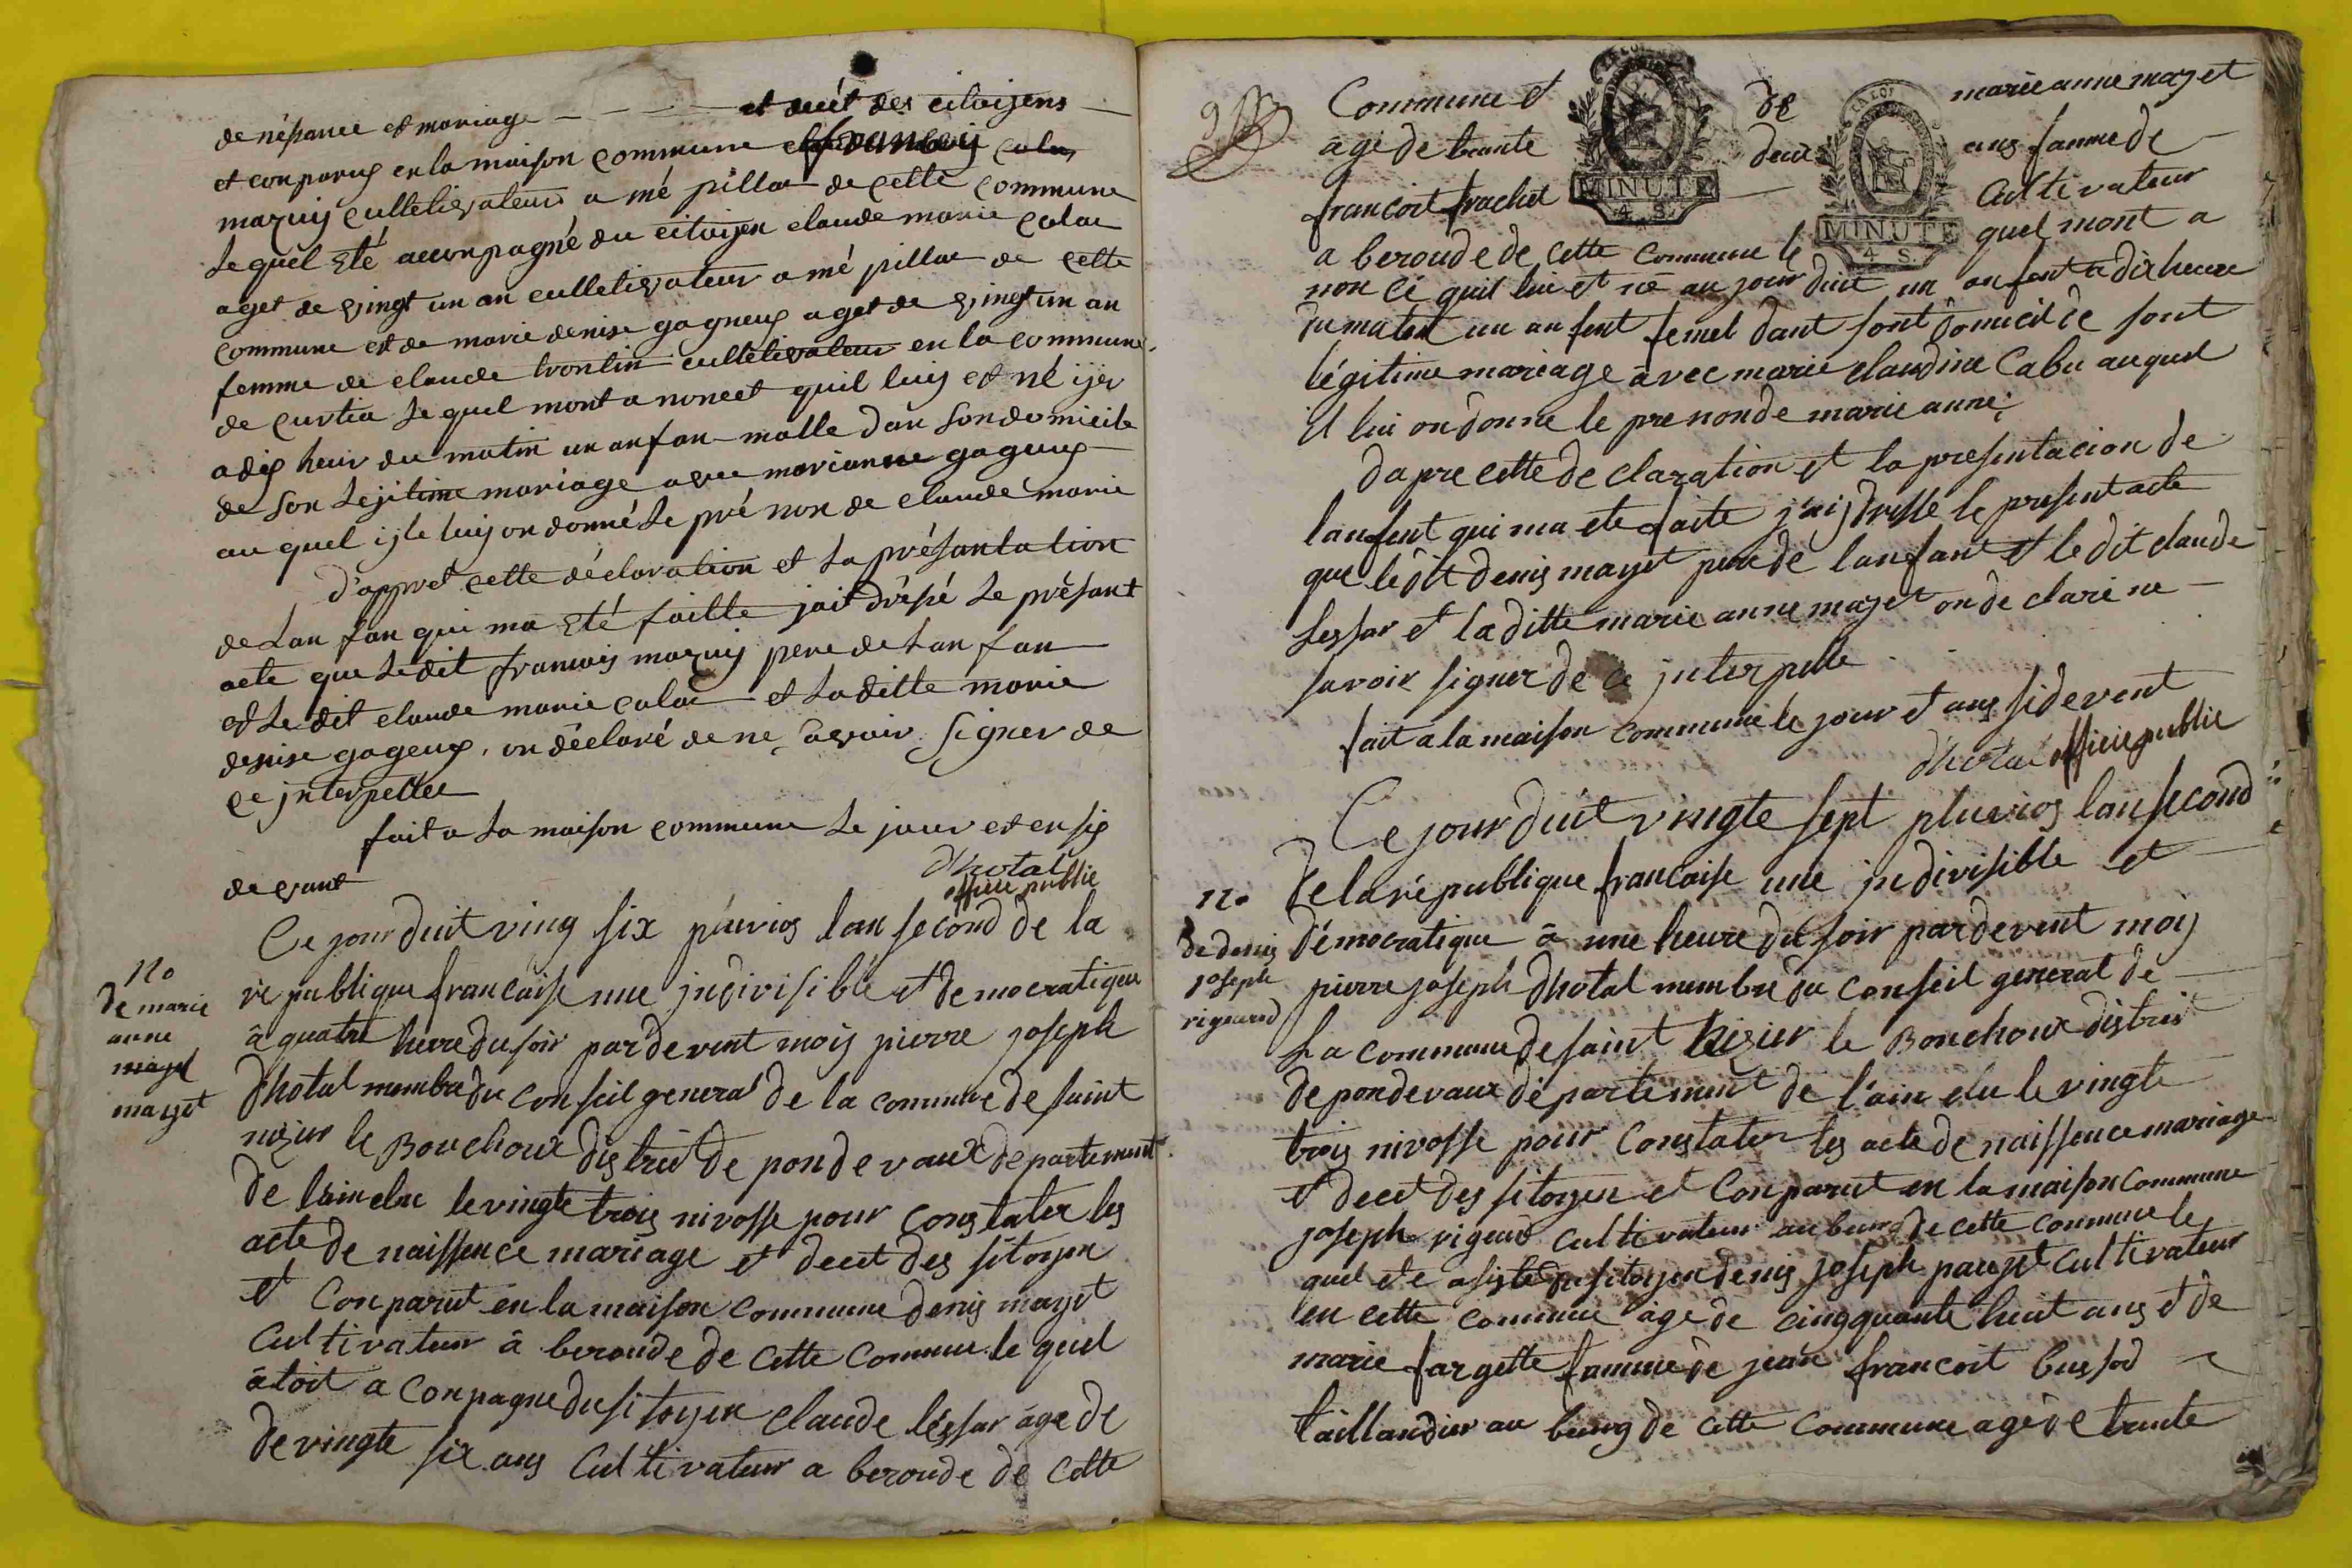 de nésance et mariage et decét des citoijens
et conparus en la maison commune francoij
maruis cultetivateur a mé pillar de cette commune
le quel eté acconpagné du citoijen claude marie calar
aget de vingt un an cultetivateur a mé pillar de cette
commune et de marie denise gagneux aget de vingt un an
femme de claude tronlin cultetivateur en la commune
de curtia le quel mont anoncet quil luij et né ijer
a dix heur du matin un anfan malle dan son domicile
de son lejitime mariage avec marianne gageux
au quel ij le luij on donné le pré non de claude marie
d'appret cette déclaration et la présantation
de lan fan qui ma eté faitte jait drésé le présant
acte que le dit francoij maruis pere de lan fan
et le dit claude marie calar et la ditte marie
denise gageux, on déclaré de ne savoir signer de
ce jnterpeller
fait a la maison commune le jour et en six
devant
d'hotal
officie public
Ce jour duit ving six pluvios lan second de la
no
de marie
anne
mayet
mayet
republique francaise une jndivisible et democratique
à quatre heure du soir par devent moij pierre joseph
dhotal membre du conseil general de la commune de saint
nizier le Bouchoux district de pondevaux departement
de lain elue le vingte trois nivosse pour constater les
acte de naissence mariage et decet des sitoyen
et Conparut en la maison commune denis mayet
Cultivateur à beroude de cette commune le quel
àtoit a conpagne du sitoyen claude lessar age de
de vingte six ans Cultivateur a beroude de cette
9
Commune et de marie anne mayet
MINUTE
4 S.
LA LOI
MINUTE
4 S.
âgé de trante deux ans famme de
francoit frachet Cultivateur
a beroude de cette commune le quel mont a
non cé quil lui et né au jour duit un anfent a dix heure
du matin un an fent femel dant sont domicile de sont
légitime mariage avec marie claudine Cabu auquel
il lui on donne le prenon de marie anne
dapre cette de claration et la presentacion de
lanfent qui ma ete faite j'aij dresse le present acte
que le dit denis mayet pere de lanfant et le dit claude
lessar et la ditte marie anne mayet on de claré ne
savoir signer de ce jnterpelle
fait à la maison commune le jour et ans sidevent
d'hotal officie public
Ce jour duit vingte sept pluvios lan second
no
de denis
joseph
rigaud
de la république francaise une jndivisible et
démocratique à une heure du soir par devent moij
pierre joseph dhotal membre du conseil general de
la commune de saint nizier le Bouchoux district
de pondevaux departement de l'ain elu le vingte
trois nivosse pour constater les acte de naissence mariage
et decet des sitoyen et Conparut en la maison commune
joseph rigaud cultivateur au bourg de cette commune le
quel ete asisté du sitoyen denis joseph pauget cultivateur
en cette commune âgé de cinqquante huit ans et de
marie fargette famme de jean francoit bussod
taillandier au bourg de cette commune agé de trante